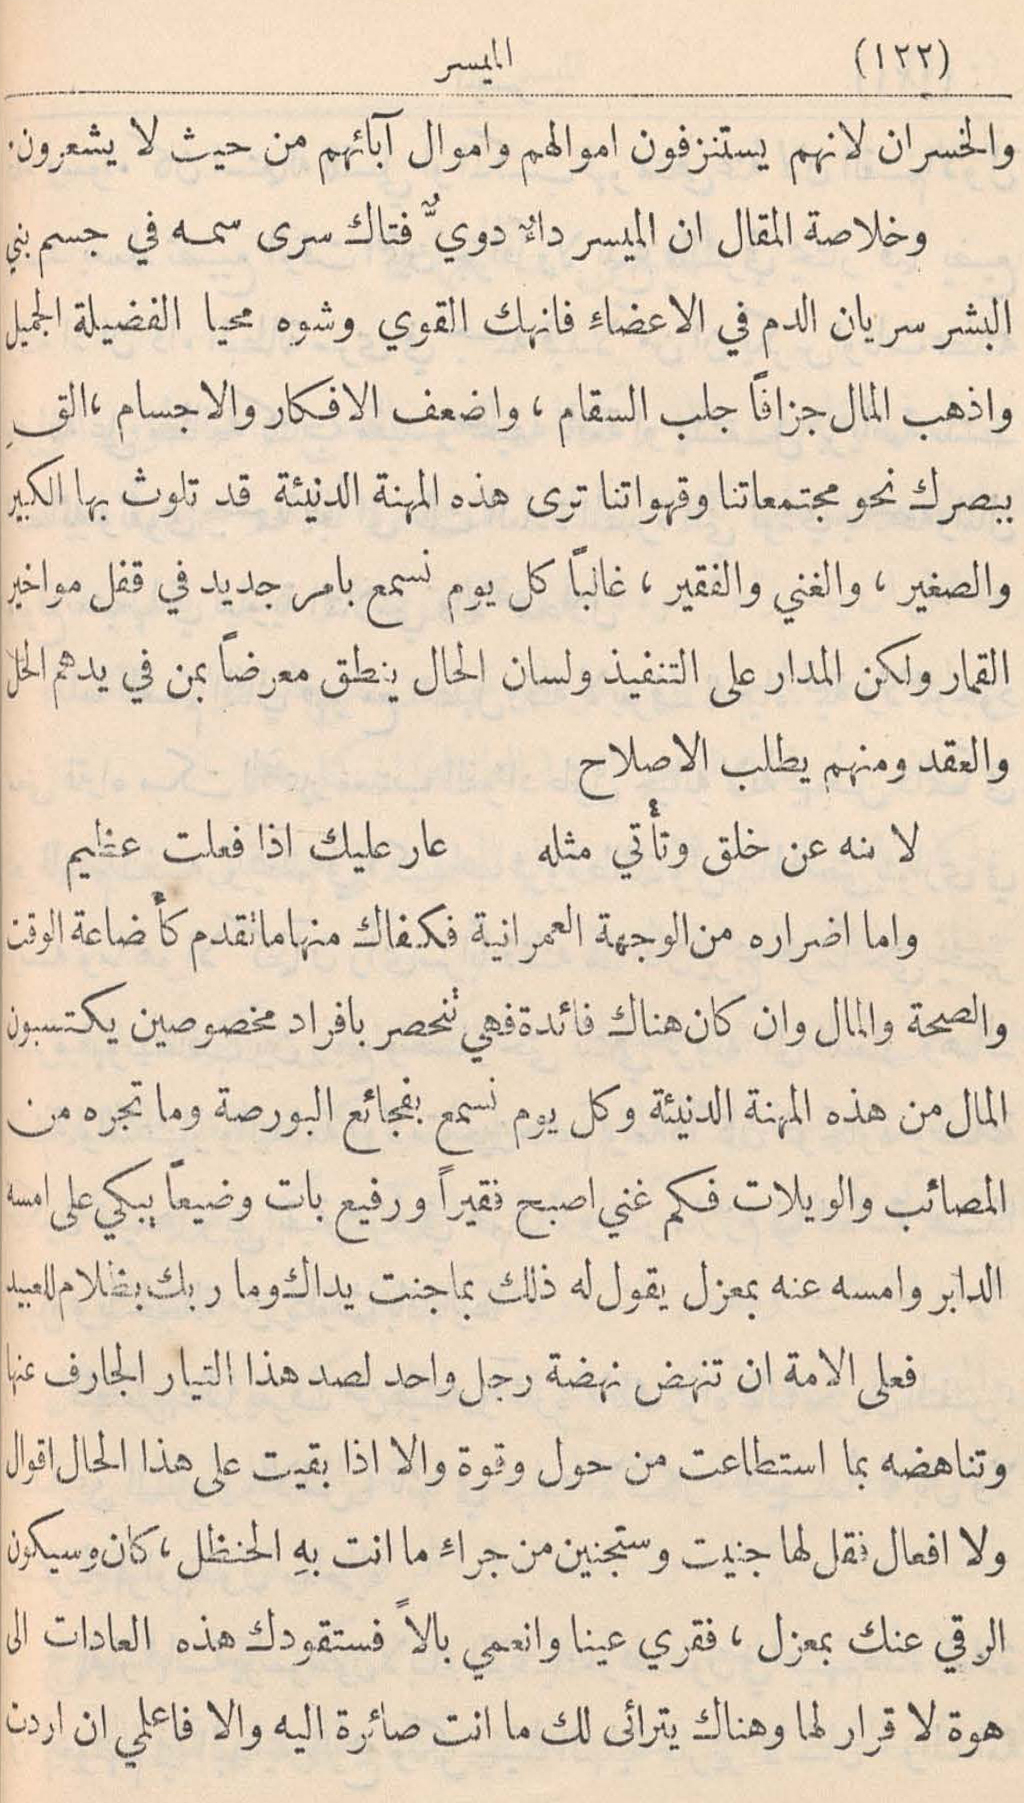 (١٢٢) الميسر
والخسران لانهم يستنزفون اموالهم واموال آبائهم من حيث لا يشعرون.
وخلاصة المقال ان الميسر داءٌ دويٌّ فتاك سرى سمه في جسم بني
البشر سريان الدم في الاعضاء فانهك القوي وشوه محيا الفضيلة الجميل
واذهب المال جزافاً جلب السقام ، واضعف الافكار والاجسام ، القِ
ببصرك نحو مجتمعاتنا وقهواتنا ترى هذه المهنة الدنيئة قد تلوث بها الكبير
والصغير ، والغني والفقير ، غالباً كل يوم نسمع بامر جديد في قفل مواخير
القمار ولكن المدار على التنفيذ ولسان الحال ينطق معرضاً بمن في يدهم الحل
والعقد ومنهم يطلب الاصلاح
لا تنه عن خلق وتأتي مثله عار عليك اذا فعلت عظيم
واما اضراره من الوجهة العمرانية فكفاك منها ما تقدم كأضاعة الوقت
والصحة والمال وان كان هناك فائدة فهي تنحصر بافراد مخصوصين يكتسبون
المال من هذه المهنة الدنيئة وكل يوم نسمع بفجائع البورصة وما تجره من
المصائب والويلات فكم غني اصبح فقيراً ورفيع بات وضيعاً يبكي على امسه
الدابر وامسه عنه بمعزل يقول له ذلك بما جنت يداك وما ربك بظلام للعبيد
فعلى الامة ان تنهض نهضة رجل واحد لصد هذا التيار الجارف عنها
وتناهضه بما استطاعت من حول وقوة والا اذا بقيت على هذا الحال اقوال
ولا افعال فقل لها جنيت وستجنين من جراء ما انت بهِ الحنظل ، كان وسيكون
الرقي عنك بمعزل ، فقري عينا وانعمي بالاً فستقودك هذه العادات الى
هوة لا قرار لها وهناك يترائى لك ما انت صائرة اليه والا فاعلمي ان اردت